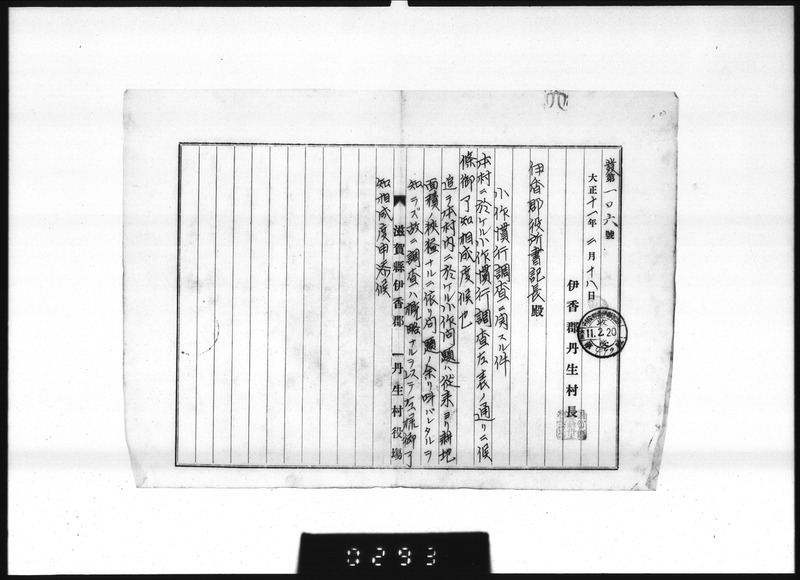 發第一〇六號
大正十一年二月十八日
伊香郡丹生村長
伊香郡役所書記長殿
小作慣行調査ニ関スル件
本村ニ於ケル小作慣行調査左表ノ通リニ候
條御了知相成度候也
追テ本村内ニ於ケル小作問題ハ従来ヨリ耕地
面積ノ狭極ナルニ依リ問題ノ余リ叫バレタルヲ
知ラズ故ニ調査ハ概略ナル
御了
知相成度申添候
滋賀縣伊香郡丹生村役場
11.2.20
0293